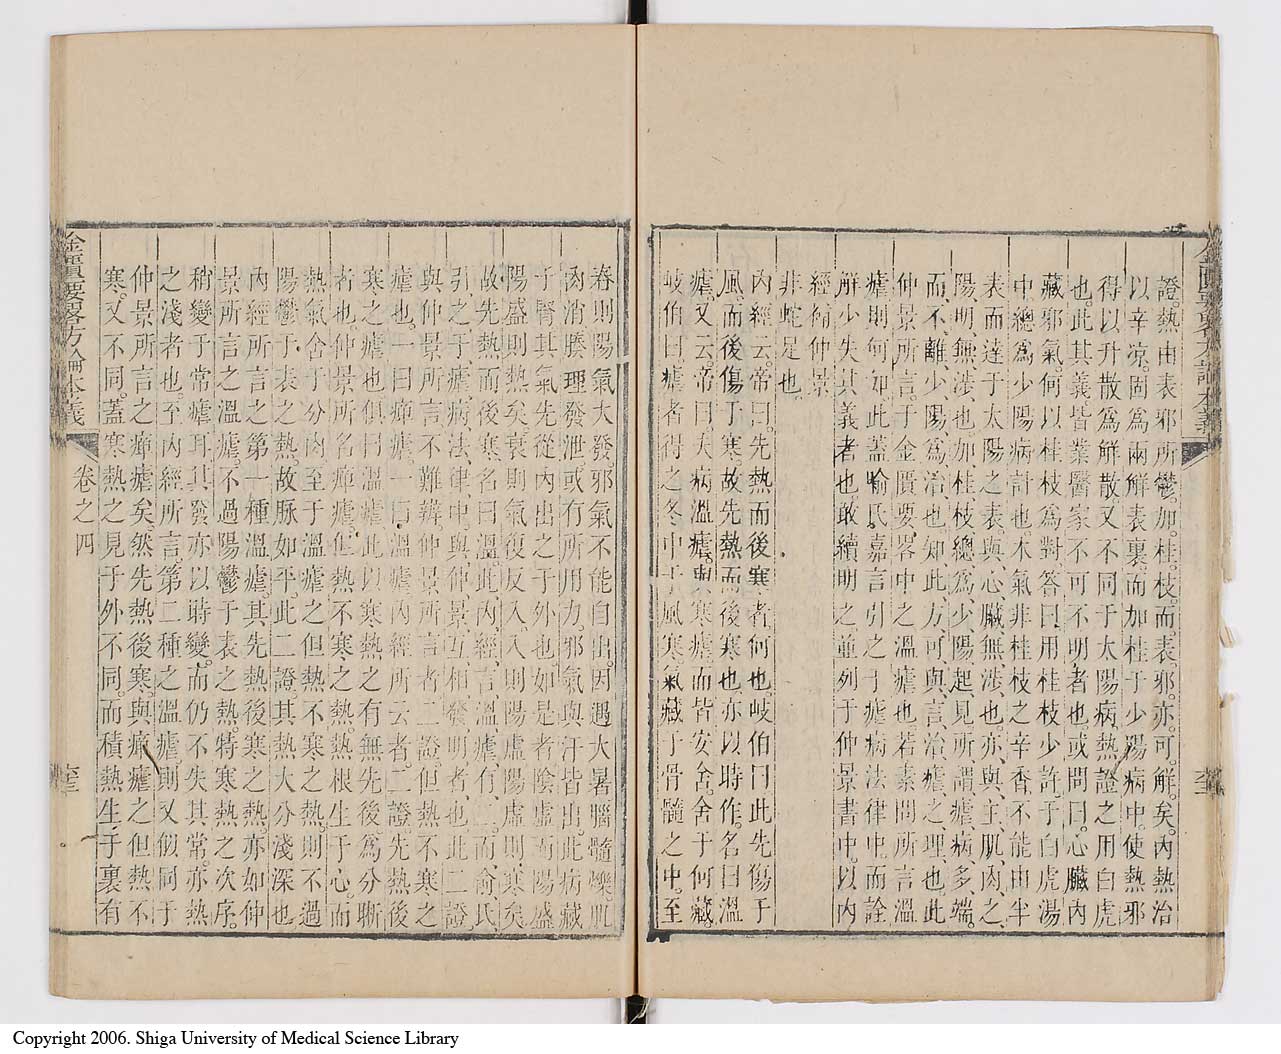 證。熱由表邪所鬱。加。桂。枝。而表。邪。亦。可。解。矣。內熱治
以辛凉。固爲兩解表裏。而加桂于少陽病中。使熱邪
得以升散爲解散。又不同于太陽病熱證之用白虎
也。此其義皆業醫家不可不明者也。或問曰。心臟內
藏邪氣。何以桂枝爲對。答曰。用桂枝少許于白虎湯
中。總爲少陽病計也。木氣非桂枝之辛香。不能由半
表而達于太陽之表。與心臟無涉也。亦與主肌肉之
陽明無涉也。加桂枝總爲少陽起見。所謂瘧病多端。
而不離少陽爲治也。知此方可與言治瘧之理也。此
仲景所言。于金匱要畧中之溫瘧也。若素問所言溫
瘧則何如。此蓋喻氏嘉言引之于瘧病法律中。而詮
解少失其義者也。敢續明之。並列于仲景書中。以內
經補仲景
非蛇足也
內經云。帝曰。先熱而後寒者何也。岐伯曰。此先傷于
風。而後傷于寒。故先熱而後寒也。亦以時作。名曰溫
瘧。又云。帝曰。夫病溫瘧與寒瘧。而皆安舍。舍于何藏。
岐伯曰。瘧者得之冬中于風寒。氣藏于骨髓之中。至
金匱要畧方論本義
春則陽氣大發。邪氣不能自出。因遇大暑。腦髓爍。肌
肉消。腠理發泄。或有所用力。邪氣與汗皆出。此病藏
于腎。其氣先從內出之于外也。如是者陰虛而陽盛
陽盛則熱矣。衰則氣復反入。入則陽虛。陽虛則寒矣
故先熱而後寒。名曰溫。此內經言溫瘧有二。而喻氏
引之于瘧病法律中。與仲景互相發明者也。此二證。
與仲景所言不難辨。仲景所言者二證。但熱不寒之
瘧也。一曰癉瘧。一曰溫瘧。內經所云者。二證。先熱後
寒之瘧也。俱曰溫瘧。此以寒熱之有無先後。爲分晰
者也。仲景所名癉瘧。但熱不寒之熱。熱根生于心。而
熱氣舍于分肉。至于溫瘧之但熱不寒之熱。則不過
陽鬱于表之熱。故脉如平。此二證其熱大分淺深也
內經所言之第一種溫瘧。其先熱後寒之熱。亦如仲
景所言之溫瘧。不過陽鬱于表之熱。特寒熱之次序。
稍變于常瘧耳。其發亦以時變。而仍不失其常。亦熱
之淺者也。至內經所言第二種之溫瘧。則又似同于
仲景所言之癉瘧矣。然先熱後寒。與癉瘧之但熱不
寒。又不同。蓋寒熱之見于外不同。而積熱生于裏有
金匱要畧方論本義
卷之四
Copyright 2006. Shiga University of Medical Science Library